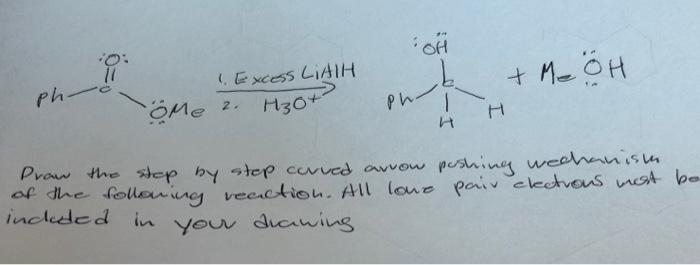 :O: :ÖH
1. Excess LiAlH
Ph C ÖMe 2. H3O+ Ph C H H + Me ÖH
Draw the step by step curved arrow pushing mechanism
of the following reaction. All lone pair electrons must be
included in your drawing